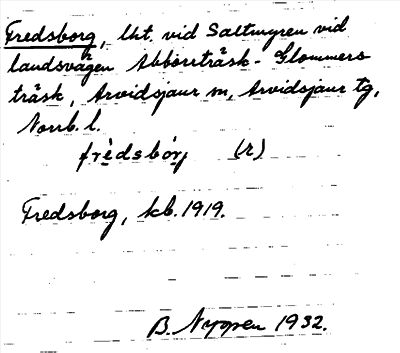 Fredsborg, lht. vid Saltmyren vid
landsvägen Abborrträsk - Glommers
träsk, Arvidsjaur sn, Arvidsjaur tg,
Norrb. l.
frèdsbórj (R)
Fredsborg, kb. 1919.
B. Nygren 1932.